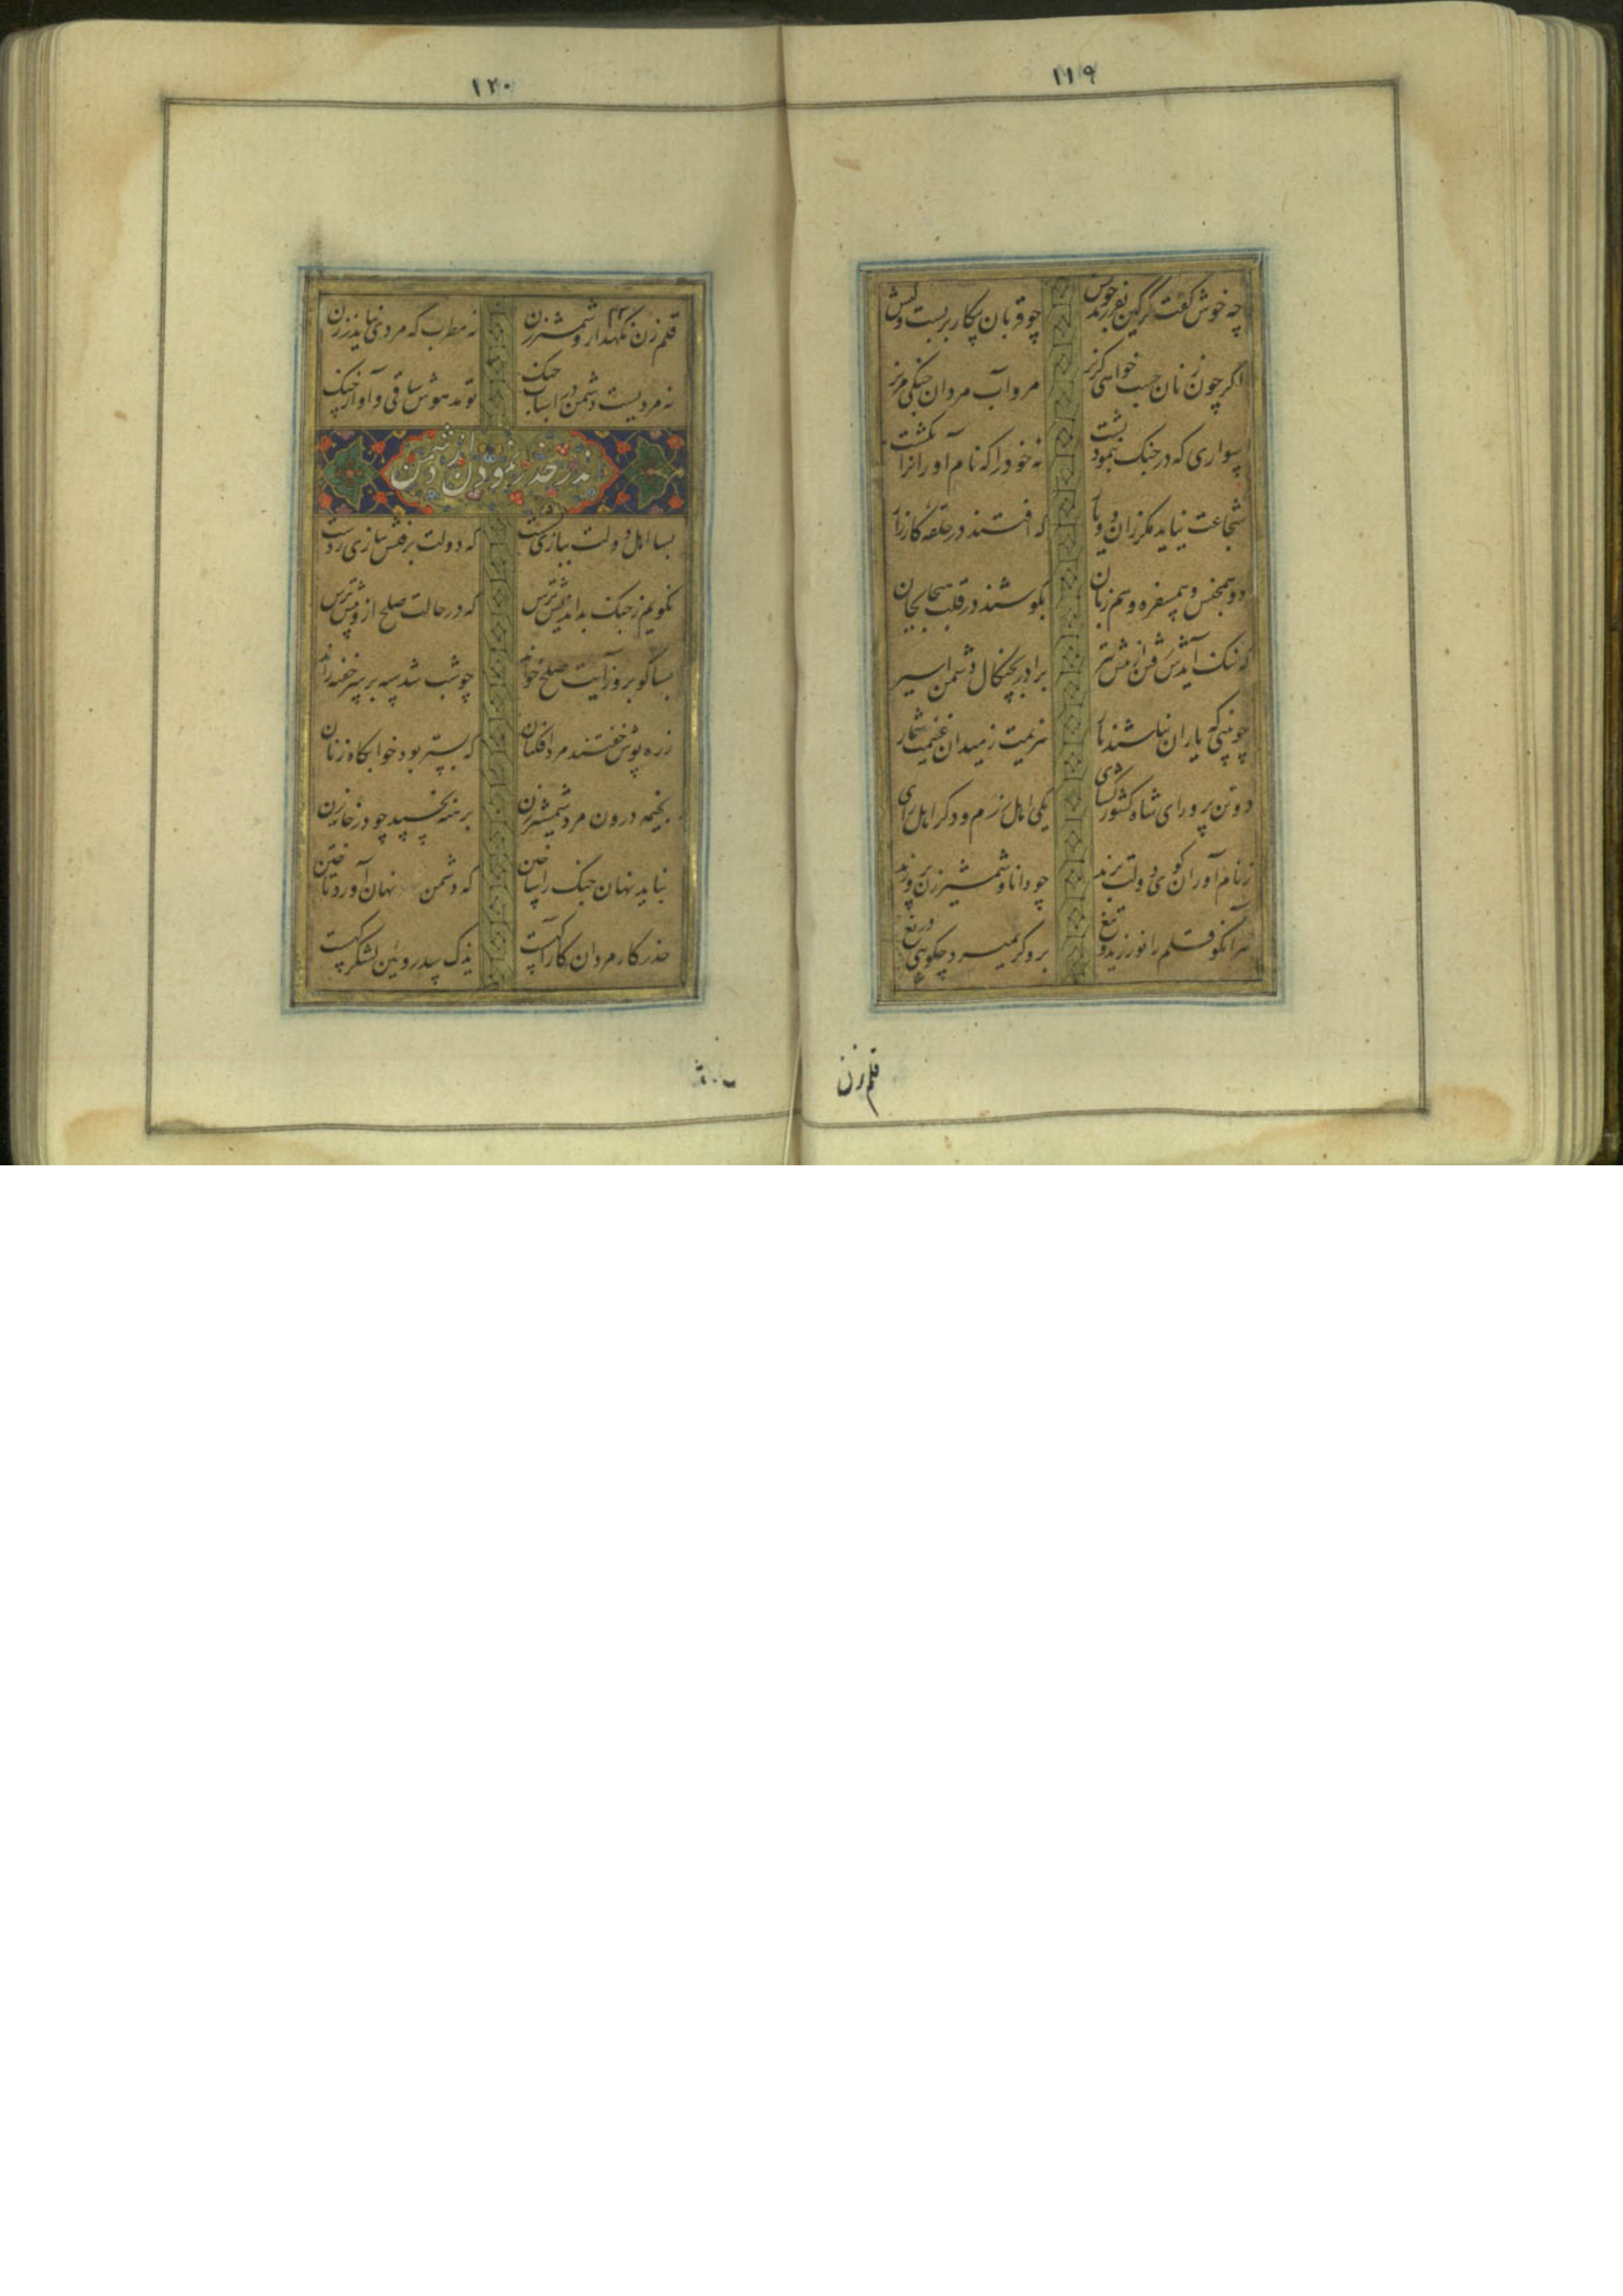 ۱۱۹
چه خوش گفت گرگین بفرزند خویش چو قربان پیکار بربست و کیش
اگر چون زنان جست خواهی گریز مرو آب مردان جنگی مریز
سواری که در جنگ بنمود پشت نه خود را که نام آورانرا بکشت
شجاعت نیاید مگر زان دو یار که افتند در حلقه کارزار
دو همجنس و همسفره و هم زبان بکوشند در قلب هیجا بجان
که ننگ آیدش رفتن از پیش تیر برادر بچنگال دشمن اسیر
چو بینی که یاران نباشند یار هزیمت ز میدان غنیمت شمار
دو تن پرور ای شاه کشورگشای یکی اهل رزم و دگر اهل رای
ز نام آوران گوی دولت برند چو دانا و شمشیر زن پرورند
هر آنکو قلم را نورزید و تیغ برو گر بمیرد مگوی دریغ
قلم زن
۱۲۰
قلم زن نگهدار و شمشیر زن نه مطرب که مردی نیاید ز زن
نه مردیست دشمن در اسباب جنگ تو مدهوش ساقی و آواز چنگ
در حذر نمودن از دشمن
بسا اهل دولت ببازی نشست که دولت برفتش ببازی ز دست
نگویم ز جنگ بداندیش ترس که در حالت صلح ازو بیش ترس
بسا کو بروز آیت صلح خواند چو شب شد سپه بر سر خفته راند
زره پوش خفتند مرد افکنان که بستر بود خوابگاه زنان
بخیمه درون مرد شمشیر زن برهنه نخسپد چو در خانه زن
بباید نهان جنگ را ساختن که دشمن نهان آورد تاختن
حذر کار مردان کار آگهست یزک سد رویین لشگر گهست